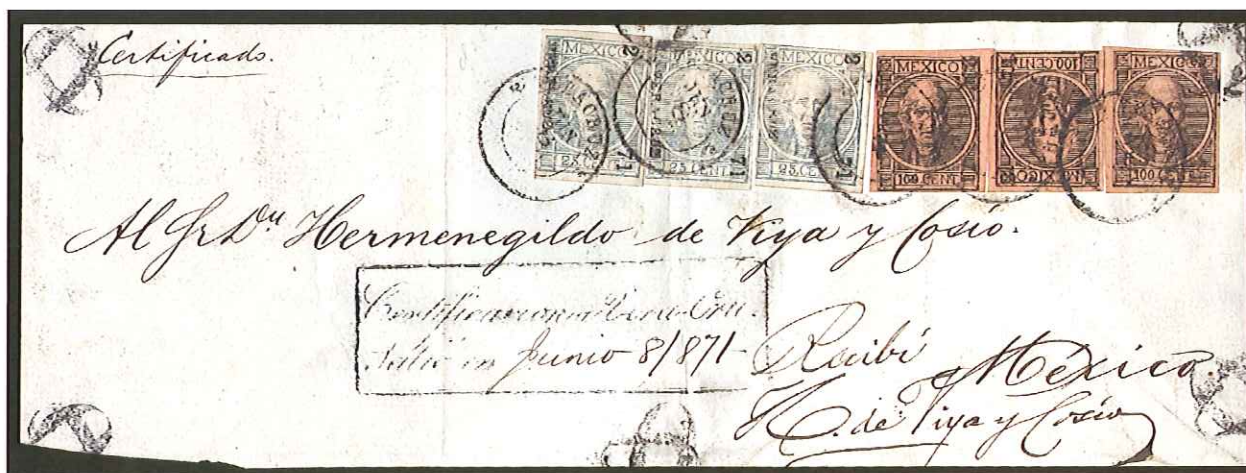 Certificado.
MEXICO MEXICO MEXICO MEXICO 100 CENT MEXICO
25 CENT 25 CENT 25 CENT 100 CENT MEXICO 100 CENT
Al Sr Dn Hermenegildo de Viya y Cosío.
Certificacion Vera Cruz
Salió en Junio 8/871
Recibí
México.
H. de Viya y Cosío